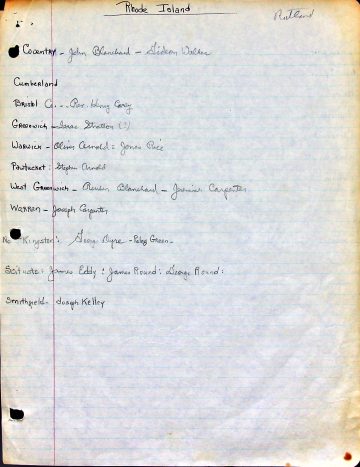 Rhode Island
Rutland
Coventry - John Blanchard - Gideon Walker
Cumberland
Bristol Co. - Rev. Henry Carey
Greenwich - Isaac Stratton (?)
Warwick - Oliver Arnold : Jonas Rice
Pawtucket : Stephen Arnold
West Greenwich - Reuben Blanchard - Carpenter
Warren - Joseph Carpenter
No. Kingston : George - Green -
Scituate : James Eddy : James Round : George Round :
Smithfield - Joseph Kelley